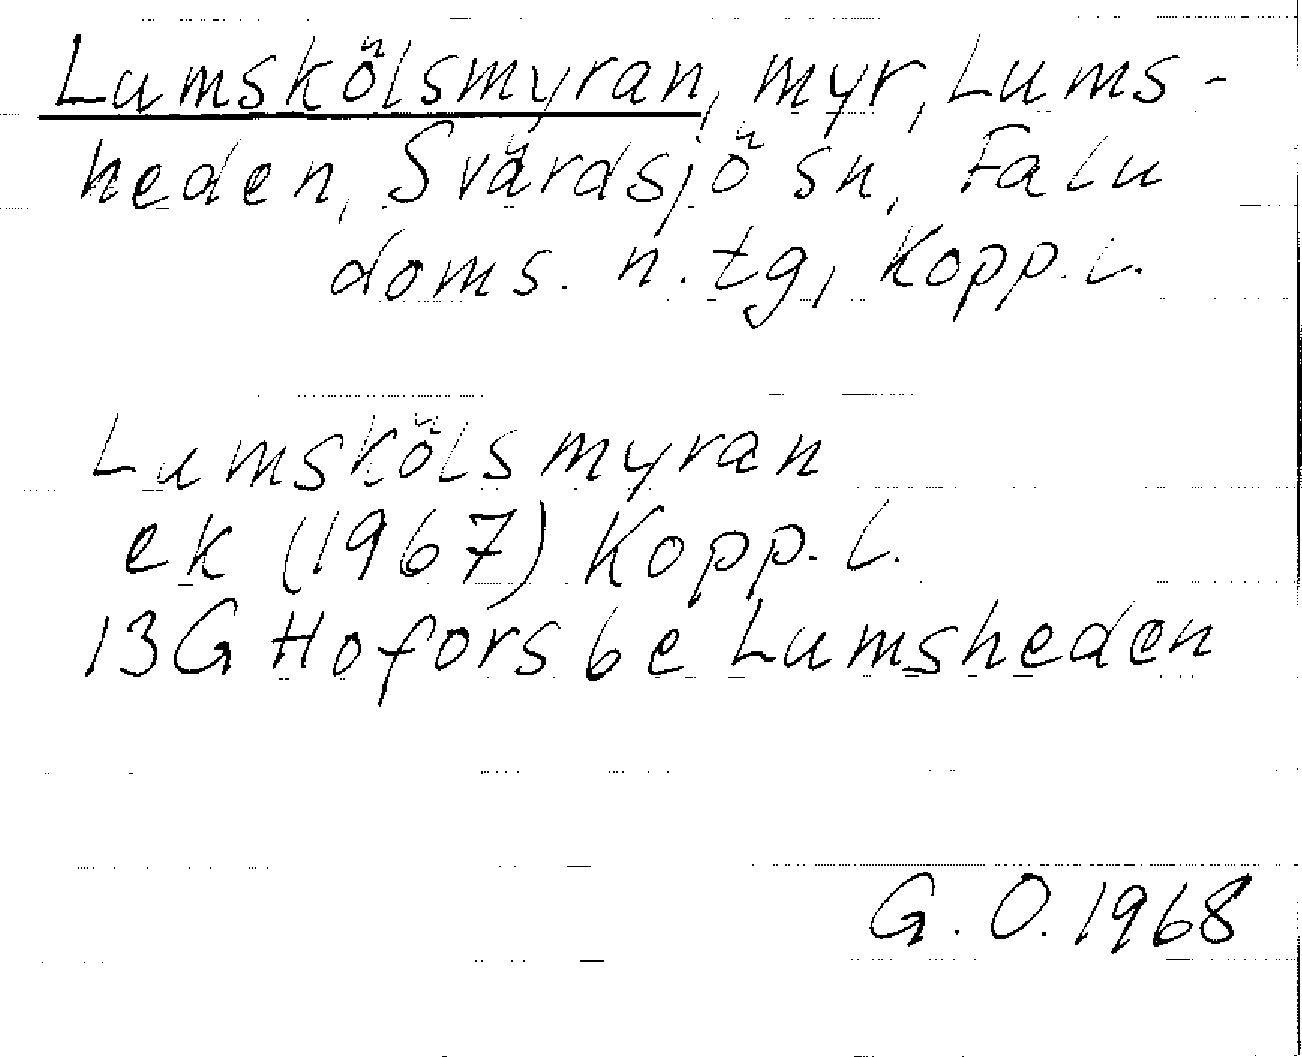 Lumskölsmyran, myr, Lums-
heden, Svärdsjö sn, Falu
doms. n. tg, Kopp. l.
Lumskölsmyran
ek (1967) Kopp. l.
13G Hofors be Lumsheden
G. O. 1968